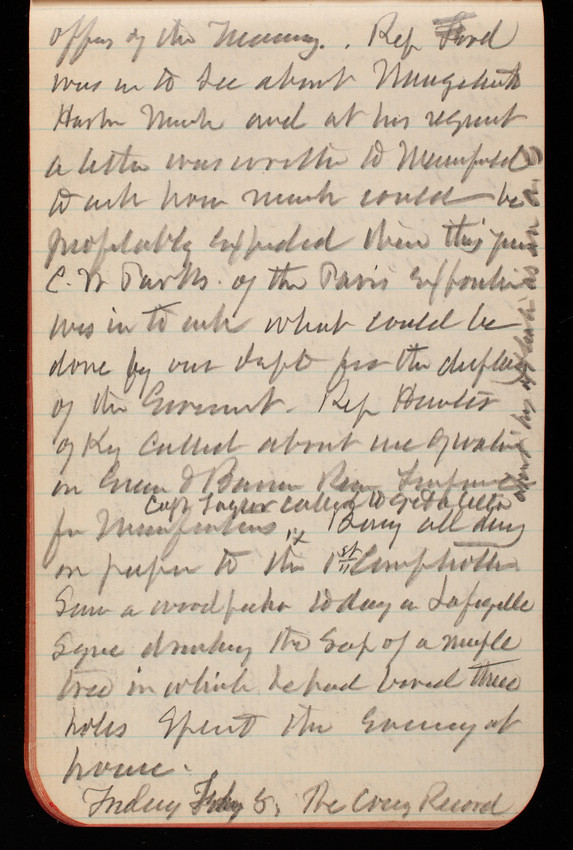 office of the Morning. Rep Ford
was in to see about
Harbor Mich and at his request
a letter was written to Mumford
to ask how much could be
profitably expended there this year
C. W Parks. of the Paris Exposition
was in to ask what could be
done by our dept for the display
of the Goverment. Rep Hunter
of Ky called about inc of water
on Green & Barren River
Capt Taylor called to get a letter
for Busy all day
on paper to the 1st Comptroller
Saw a woodpecker today in Lafayette
Sqre drinking the Sap of a maple
tree in which he had bored three
holes Spent the Evening at
home.
Friday Feby 5, The Cong Record
about his